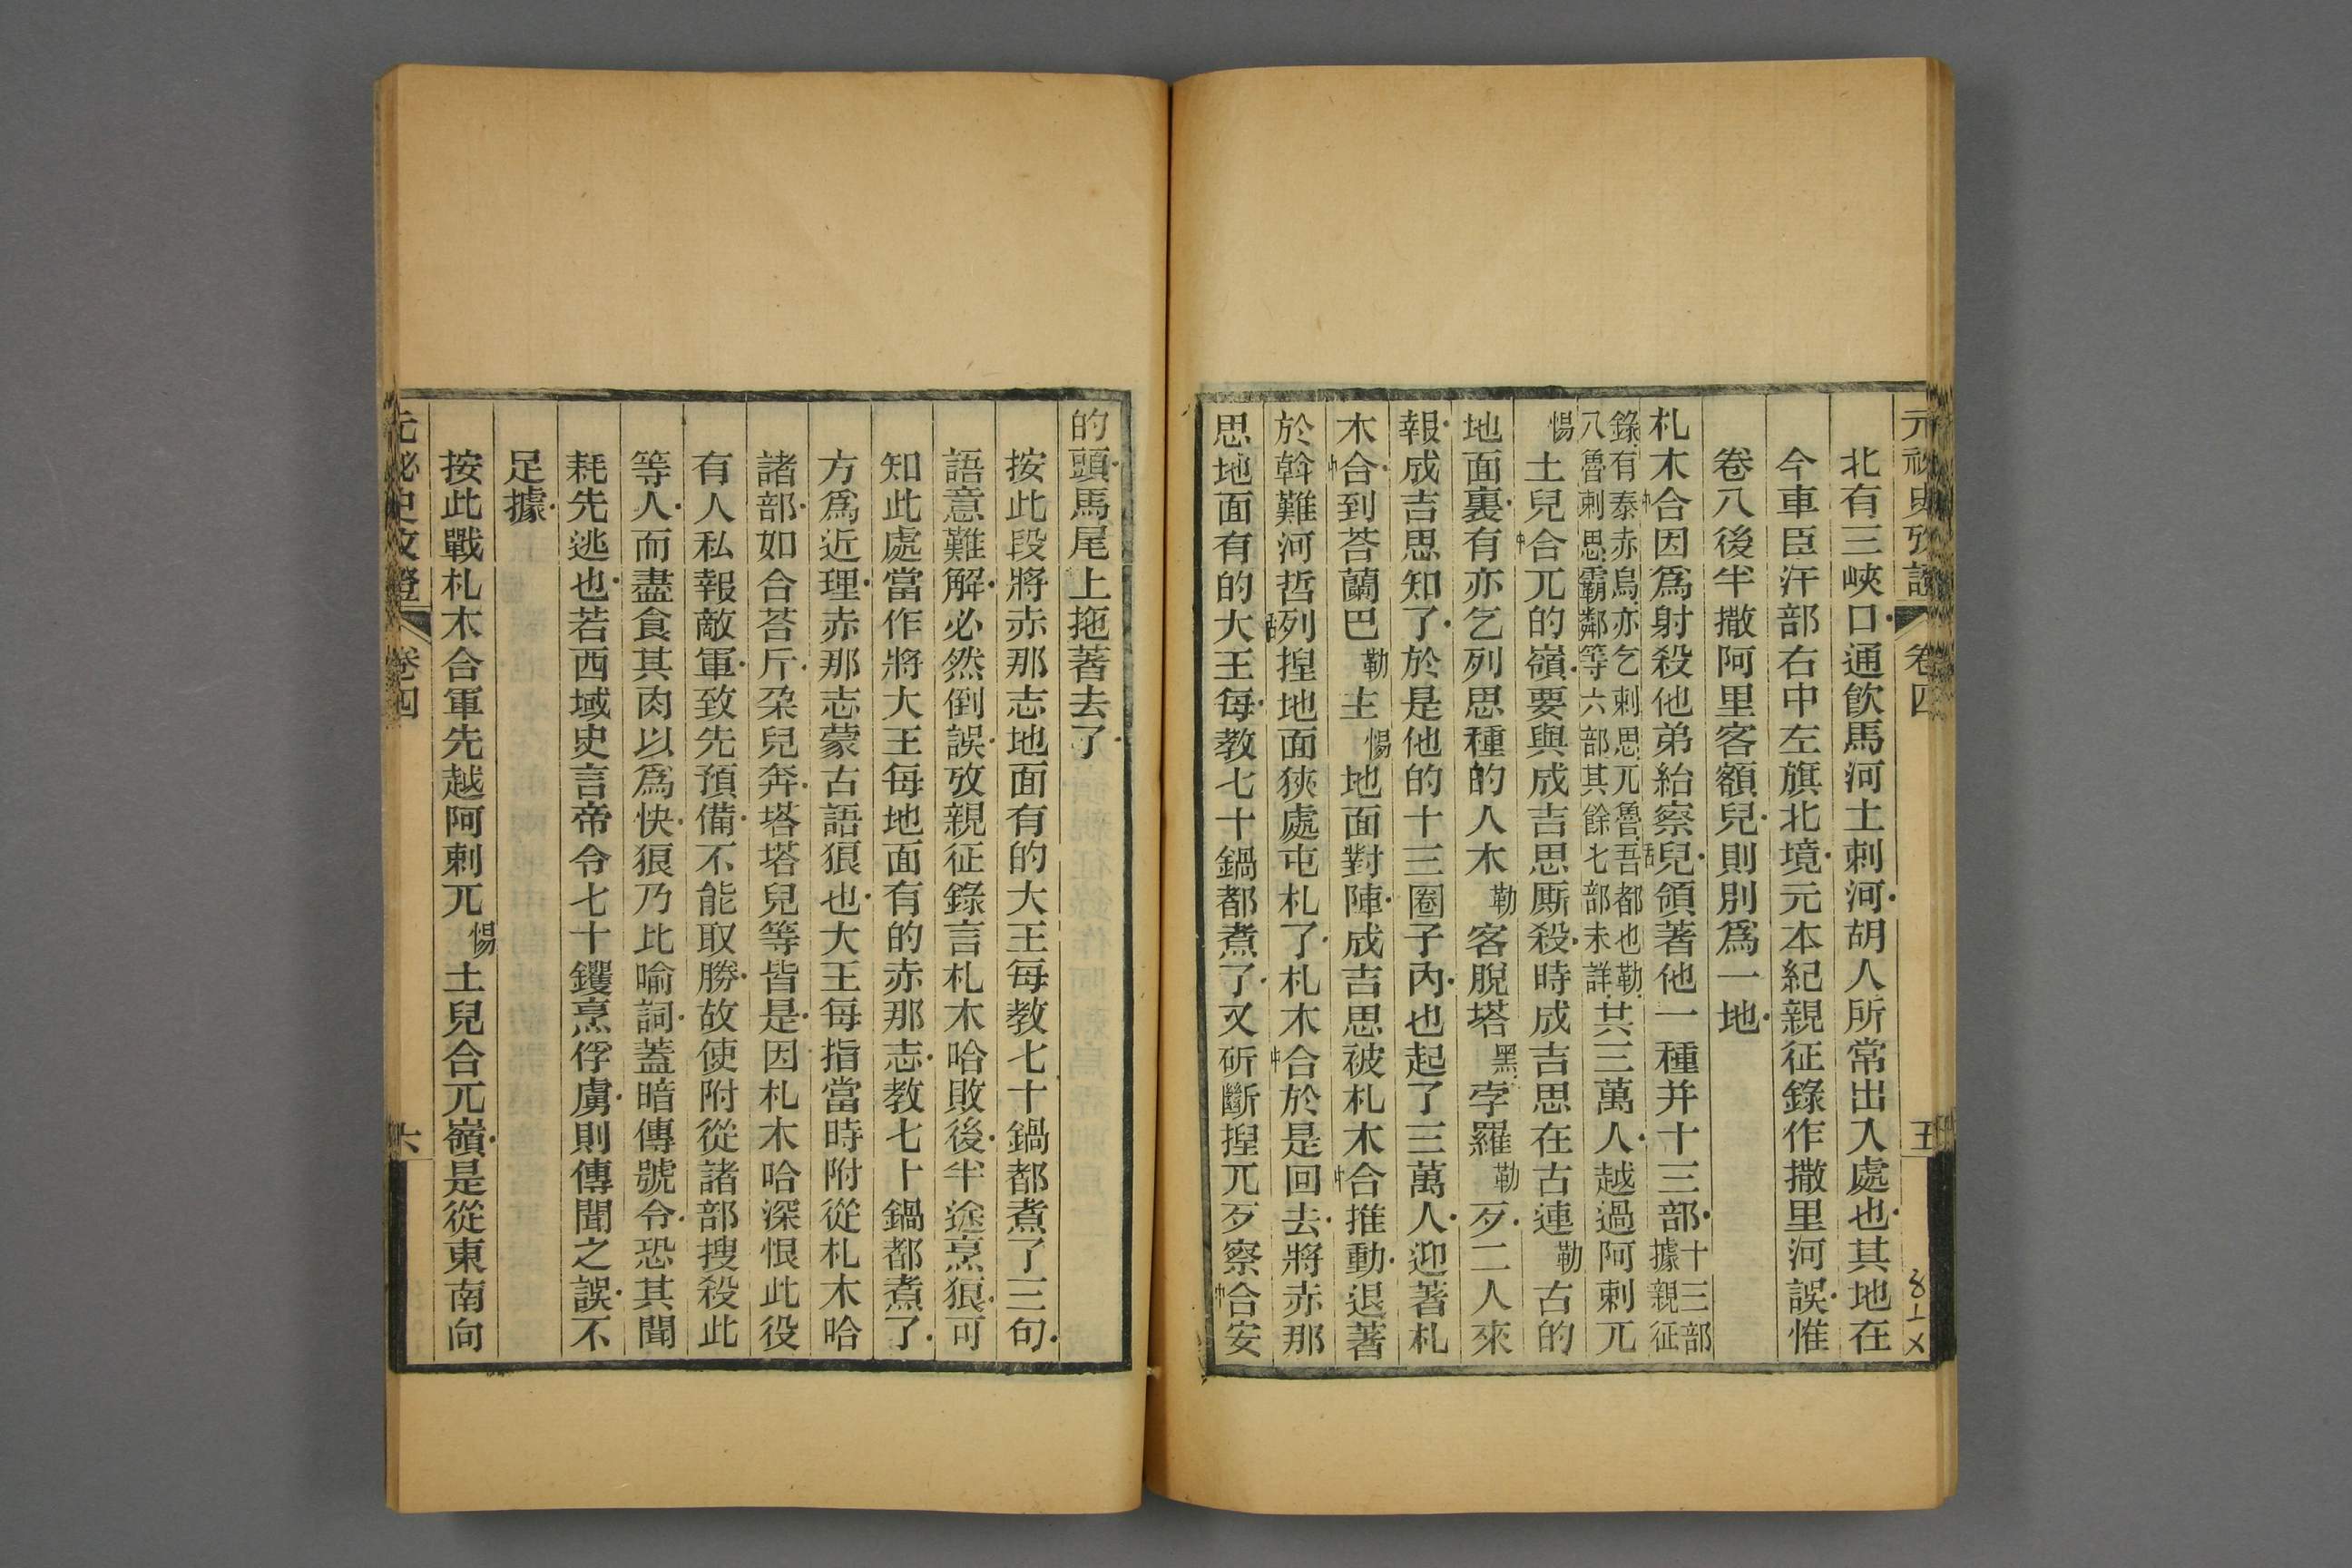 元秘史攷證 卷四 五
北有三峽口通飲馬河土剌河胡人所常出入處也其地在
今車臣汗部右中左旗北境元本紀親征錄作撒里河誤惟
卷八後半撒阿里客額兒則別爲一地
札木中合因爲射殺他弟紿察舌兒領著他一種并十三部十三部據親征
錄有泰赤烏亦乞剌思兀魯吾都也勒八魯剌思霸鄰等六部其餘七部未詳共三萬人越過阿剌兀
惕土兒中合兀的嶺要與成吉思厮殺時成吉思在古連勒古的
地面裏有亦乞列思種的人木勒客脫塔黑孛羅勒歹二人來
報成吉思知了於是他的十三圈子內也起了三萬人迎著札
木中合到荅蘭巴勒主惕地面對陣成吉思被札木中合推動退著
於斡難河哲舌列揑地面狹處屯札了札木中合於是回去將赤那
思地面有的大王每教七十鍋都煮了又斫斷揑兀歹察中合安
的頭馬尾上拖著去了
按此段將赤那志地面有的大王每教七十鍋都煮了三句
語意難解必然倒誤攷親征錄言札木哈敗後半途烹狼可
知此處當作將大王每地面有的赤那志教七十鍋都煮了
方爲近理赤那志蒙古語狼也大王每指當時附從札木哈
諸部如合荅斤朶兒奔塔塔兒等皆是因札木哈深恨此役
有人私報敵軍致先預備不能取勝故使附從諸部搜殺此
等人而盡食其肉以爲快狼乃比喻詞蓋暗傳號令恐其聞
耗先逃也若西域史言帝令七十鑊烹俘虜則傳聞之誤不
足據
按此戰札木合軍先越阿剌兀惕土兒合兀嶺是從東南向
元秘史攷證 卷四 六